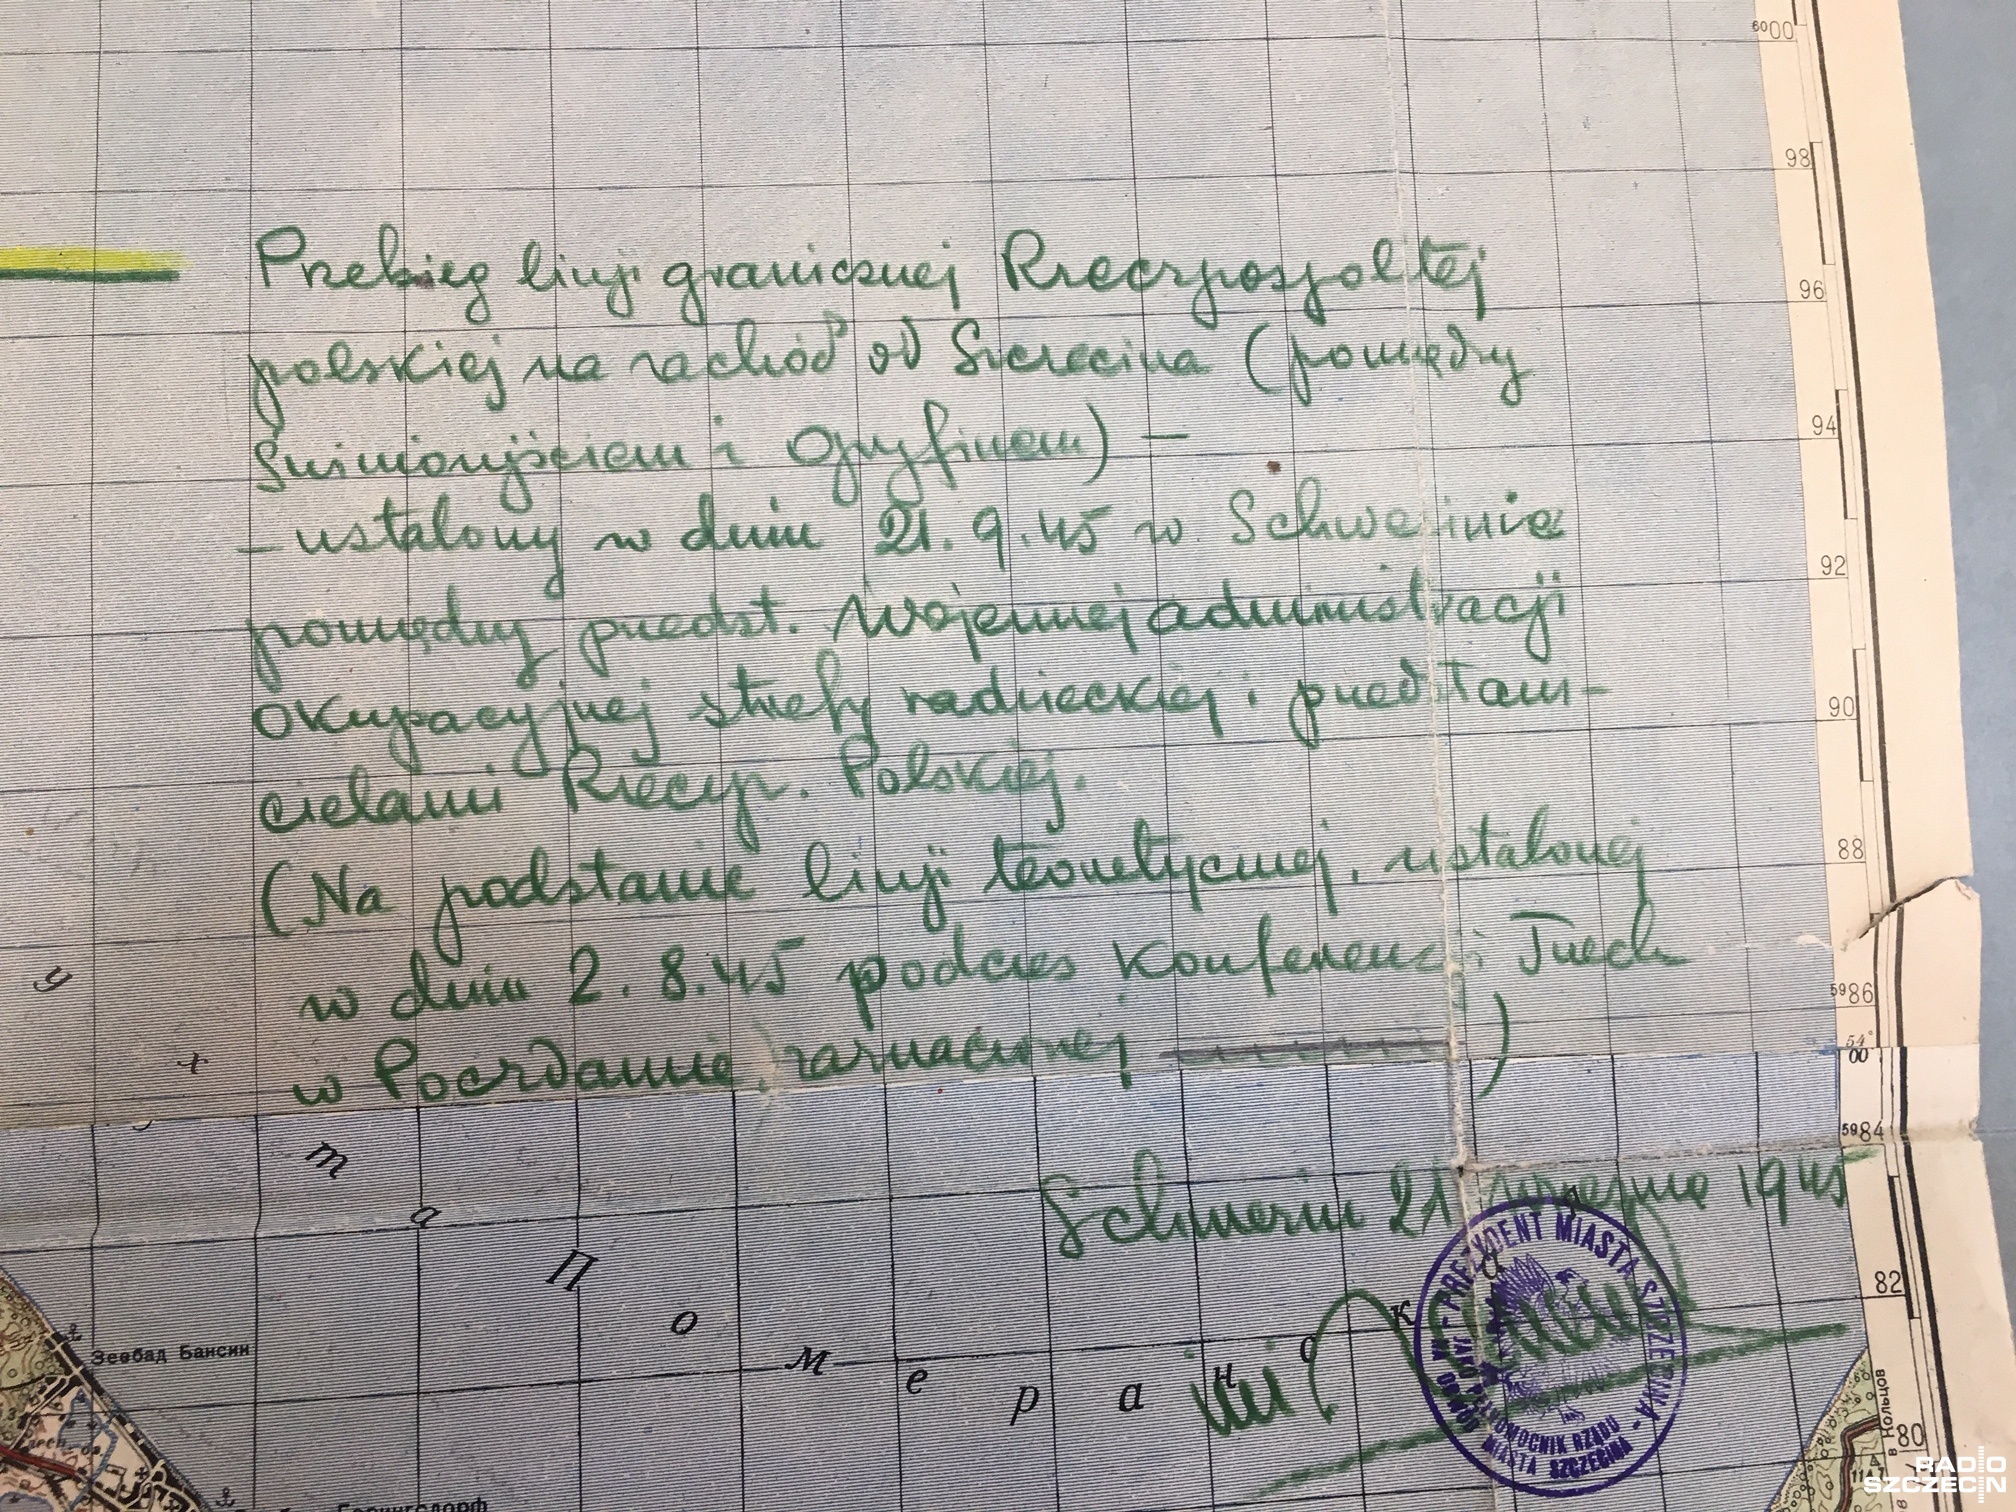 Przebieg linji granicznej Rzeczpospoltej
polskiej na zachód od Szczecina (pomiędzy
Świnioujściem i Gryfinem) —
– ustalony w dniu 21.9.45 w Schwerinie
pomiędzy przedst. Wojennej administracji
Okupacyjnej strefy radzieckiej i przedstawi-
cielami Rzeczp. Polskiej.
(Na podstawie linji teoretycznej, ustalonej
w dniu 2.8.45 podczas Konferencji Trzech
w Poczdamie, zaznaczonej )
Schwerin 21 września 1945
inż.
PREZYDENT MIASTA SZCZECINA
PEŁNOMOCNIK RZĄDU
MIASTA SZCZECINA
6000
98
96
94
92
90
88
5986
54°
00
5984
82
80
у
т
а
П
о
м
е
р
а
н
с
к
а
Зеебад Бансин
в Кольцов
RADIO
SZCZECIN